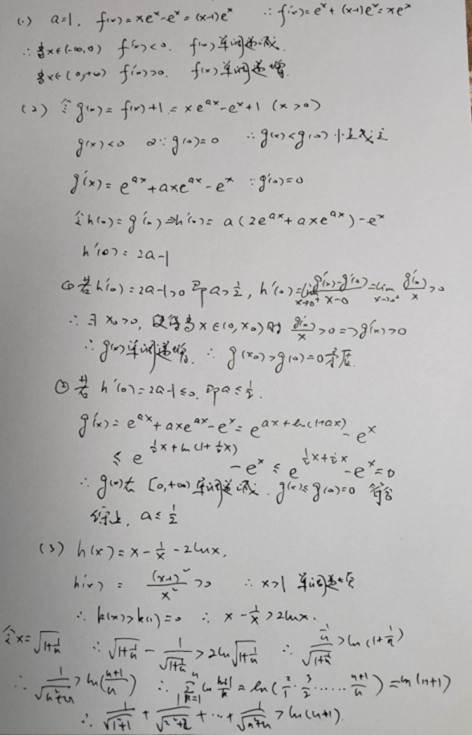 (1) a=1, f(x)=xeˣ-eˣ=(x-1)eˣ ∴f'(x)=eˣ+(x-1)eˣ=xeˣ
∴当x∈(-∞,0) f'(x)<0. f(x)单调递减.
当x∈(0,+∞) f'(x)>0. f(x)单调递增.
(2) 令g(x)=f(x)+1=xe^{ax}-eˣ+1 (x>0)
g(x)<0 又∵g(0)=0 ∴g(x)<g(0)恒成立
g'(x)=e^{ax}+axe^{ax}-eˣ ∵g'(0)=0
令h(x)=g'(x)⇒h'(x)=a(2e^{ax}+axe^{ax})-eˣ
h'(0)=2a-1
①若h'(0)=2a-1>0 即a>1/2, h'(0)=lim_{x→0⁺} (g'(x)-g'(0))/(x-0)=lim_{x→0⁺} g'(x)/x>0
∴∃x₀>0, 使得当x∈(0,x₀)时 g'(x)/x>0=>g'(x)>0
∴g(x)单调递增. ∴g(x₀)>g(0)=0矛盾.
②若h'(0)=2a-1≤0. 即a≤1/2.
g'(x)=e^{ax}+axe^{ax}-eˣ=e^{ax+ln(1+ax)}-eˣ
≤e^{1/2x+ln(1+1/2x)}-eˣ≤e^{1/2x+1/2x}-eˣ=0
∴g(x)在[0,+∞)单调递减. g(x)≤g(0)=0 符合
综上, a≤1/2
(3) h(x)=x-1/x-2lnx,
h'(x)=(x-1)²/x²>0 ∴x>1单调递增
∴h(x)>h(1)=0 ∴x-1/x>2lnx.
令x=√(1+1/n) ∴√(1+1/n)-1/√(1+1/n)>2ln√(1+1/n) ∴(1/n)/√(1+1/n)>ln(1+1/n)
∴1/√(n²+n)>ln((n+1)/n) ∴∑_{k=1}^{n}ln((k+1)/k)=ln(2/1·3/2·……(n+1)/n)=ln(n+1)
∴1/√(1²+1)+1/√(2²+2)+…+1/√(n²+n)>ln(n+1).